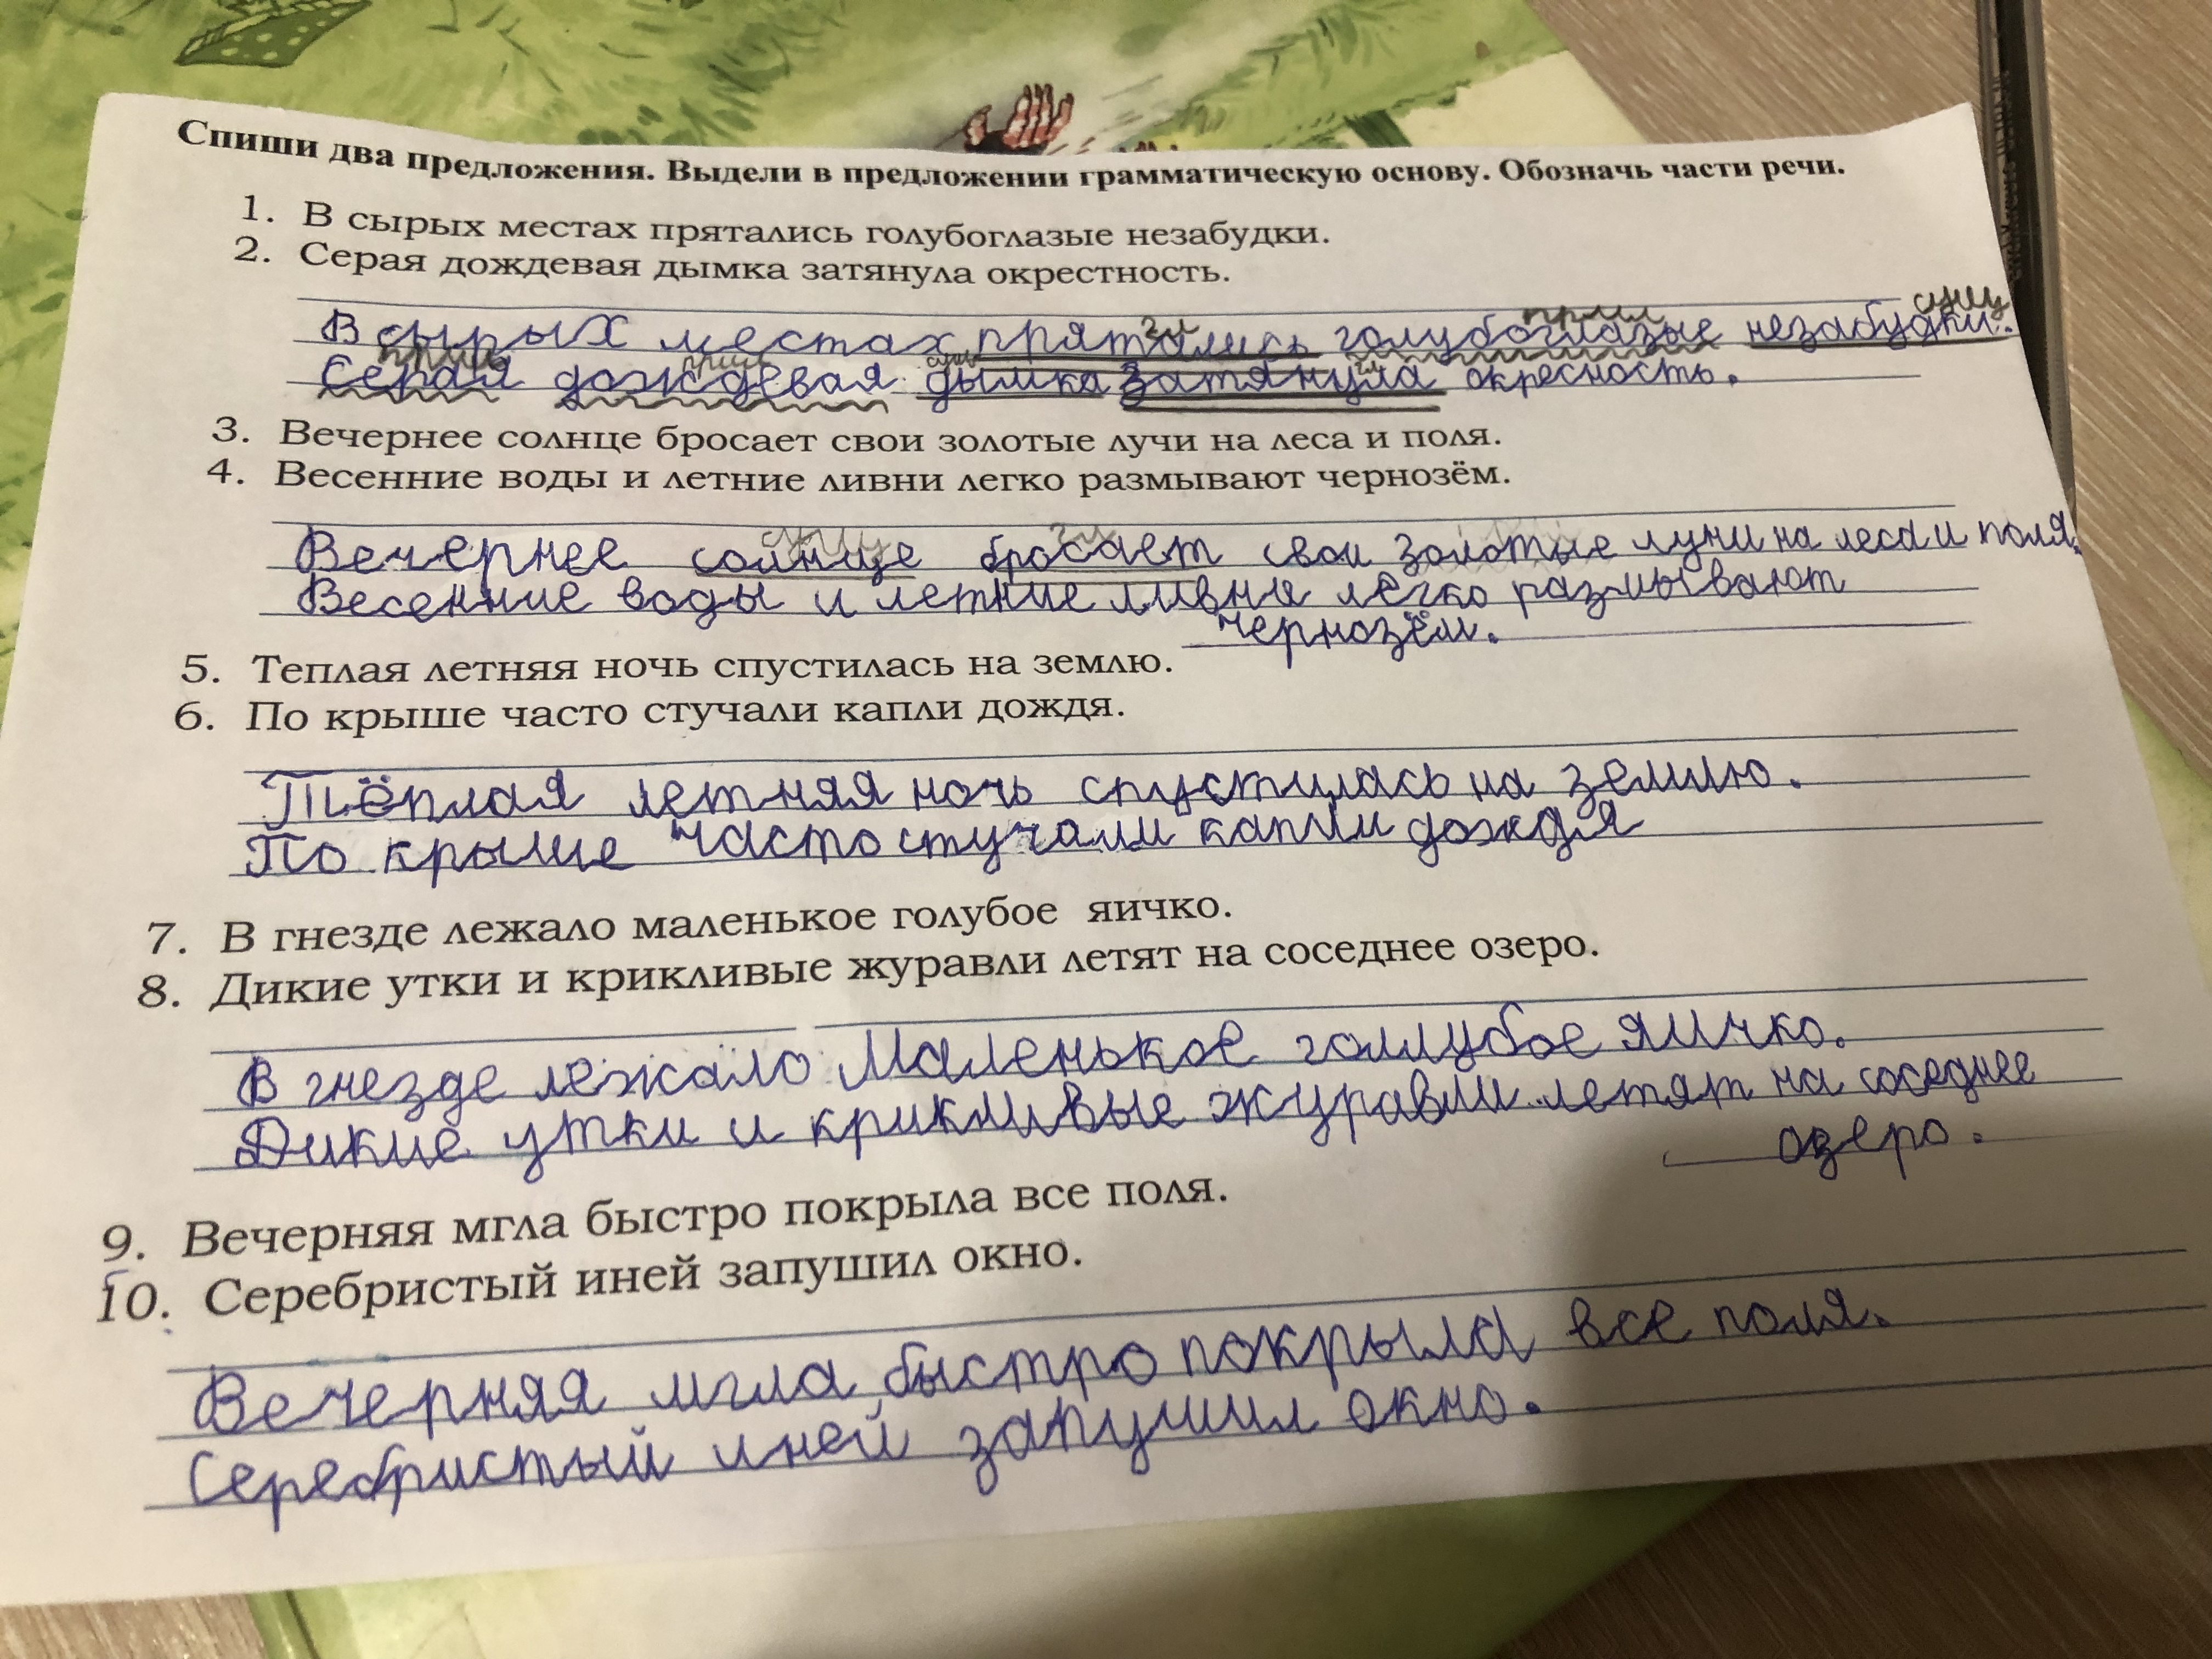 Спиши два предложения. Выдели в предложении грамматическую основу. Обозначь части речи.
1. В сырых местах прятались голубоглазые незабудки.
2. Серая дождевая дымка затянула окрестность.
гл прил сущ
В сырых местах прятались голубоглазые незабудки.
прил прил сущ гл
Серая дождевая дымка затянула окресность.
3. Вечернее солнце бросает свои золотые лучи на леса и поля.
4. Весенние воды и летние ливни легко размывают чернозём.
сущ гл
Вечернее солнце бросает свои золотые лучи на леса и поля.
Весенние воды и летние ливни легко размывают
чернозём.
5. Теплая летняя ночь спустилась на землю.
6. По крыше часто стучали капли дождя.
Тёплая летняя ночь спустилась на землю.
По крыше часто стучали капли дождя
7. В гнезде лежало маленькое голубое яичко.
8. Дикие утки и крикливые журавли летят на соседнее озеро.
В гнезде лежало маленькое голлубое яичко.
Дикие утки и крикливые журавли летят на соседнее
озеро.
9. Вечерняя мгла быстро покрыла все поля.
10. Серебристый иней запушил окно.
Вечерняя мгла быстро покрыла все поля.
Серебристый иней запушил окно.